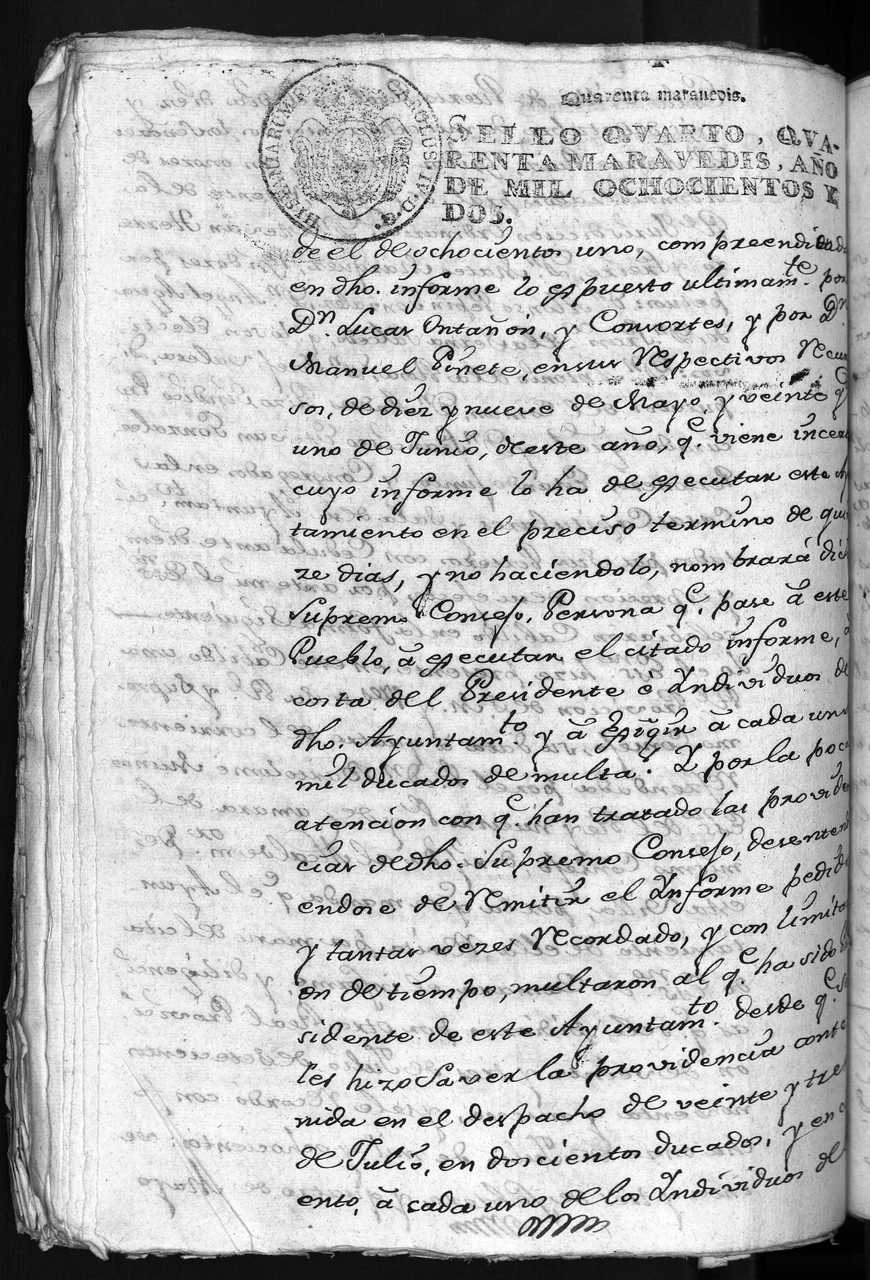 Quarenta maravedis.
HISPANIARUM CAROLUS IV D. G.
SELLO QVARTO, QVA-
RENTA MARAVEDIS, AÑO
DE MIL OCHOCIENTOS Y
DOS.
de el de ochocientos uno, compreendi
en dho. informe lo espuesto ultimamte. por
Dn. Lucas Ontañon, y Consortes, y por Dn.
Manuel Piñete, en sus Respectivos Recur
sos, de diez y nueve de Mayo, y veinte y
uno de Junio, de este año, qe. viene incer
cuyo informe lo ha de egecutar este Ay
tamiento en el preciso termino de quin
ze dias, y no haciendolo, nombrará dic
Supremo Consejo, Persona qe. pase à este
Pueblo, à egecutar el citado informe, à
costa del Presidente è Individuos de
dho. Ayuntamto. y à Exigir à cada uno
mil ducados de multa. Y por la poca
atencion con qe. han tratado las providen
cias de dho. Supremo Consejo, desentendi
endose de Remitir el Informe pedido
y tantas vezes Recordado, y con limitaci
on de tiempo, multaron al qe. ha sido Pre
sidente de este Ayuntamto. desde qe. se
les hizo saver la providencia conte
nida en el despacho de veinte y tres
de Julio, en doscientos ducados, y en ci
ento, à cada uno de los Individuos de